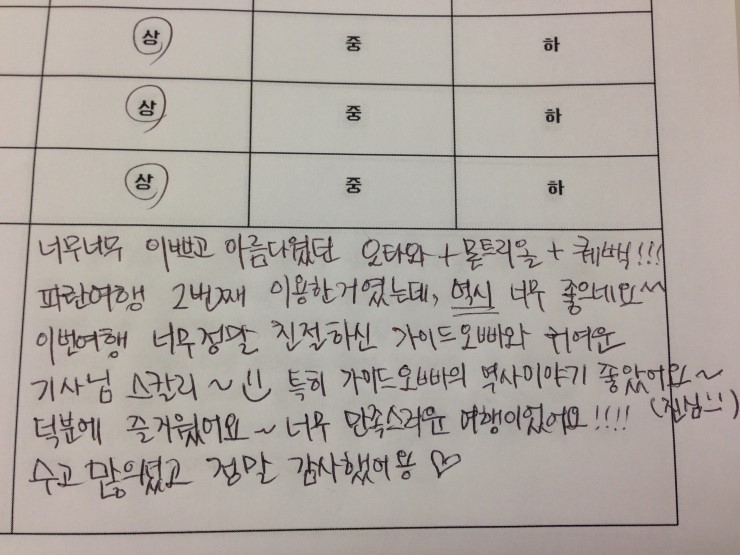 상 중 하
상 중 하
상 중 하
너무너무 이쁘고 아름다웠던 오타와 + 몬트리올 + 퀘백!!!
파란여행 2번째 이용한거였는데, 역시 너무 좋으네요^^
이번여행 너무정말 친절하신 가이드오빠와 귀여운
기사님 스칼리~ 특히 가이드오빠의 역사이야기 좋았어요~
덕분에 즐거웠어요~ 너무 만족스러운 여행이었어요!!!! (진심!!)
수고 많으셨고 정말 감사했어용 ♡